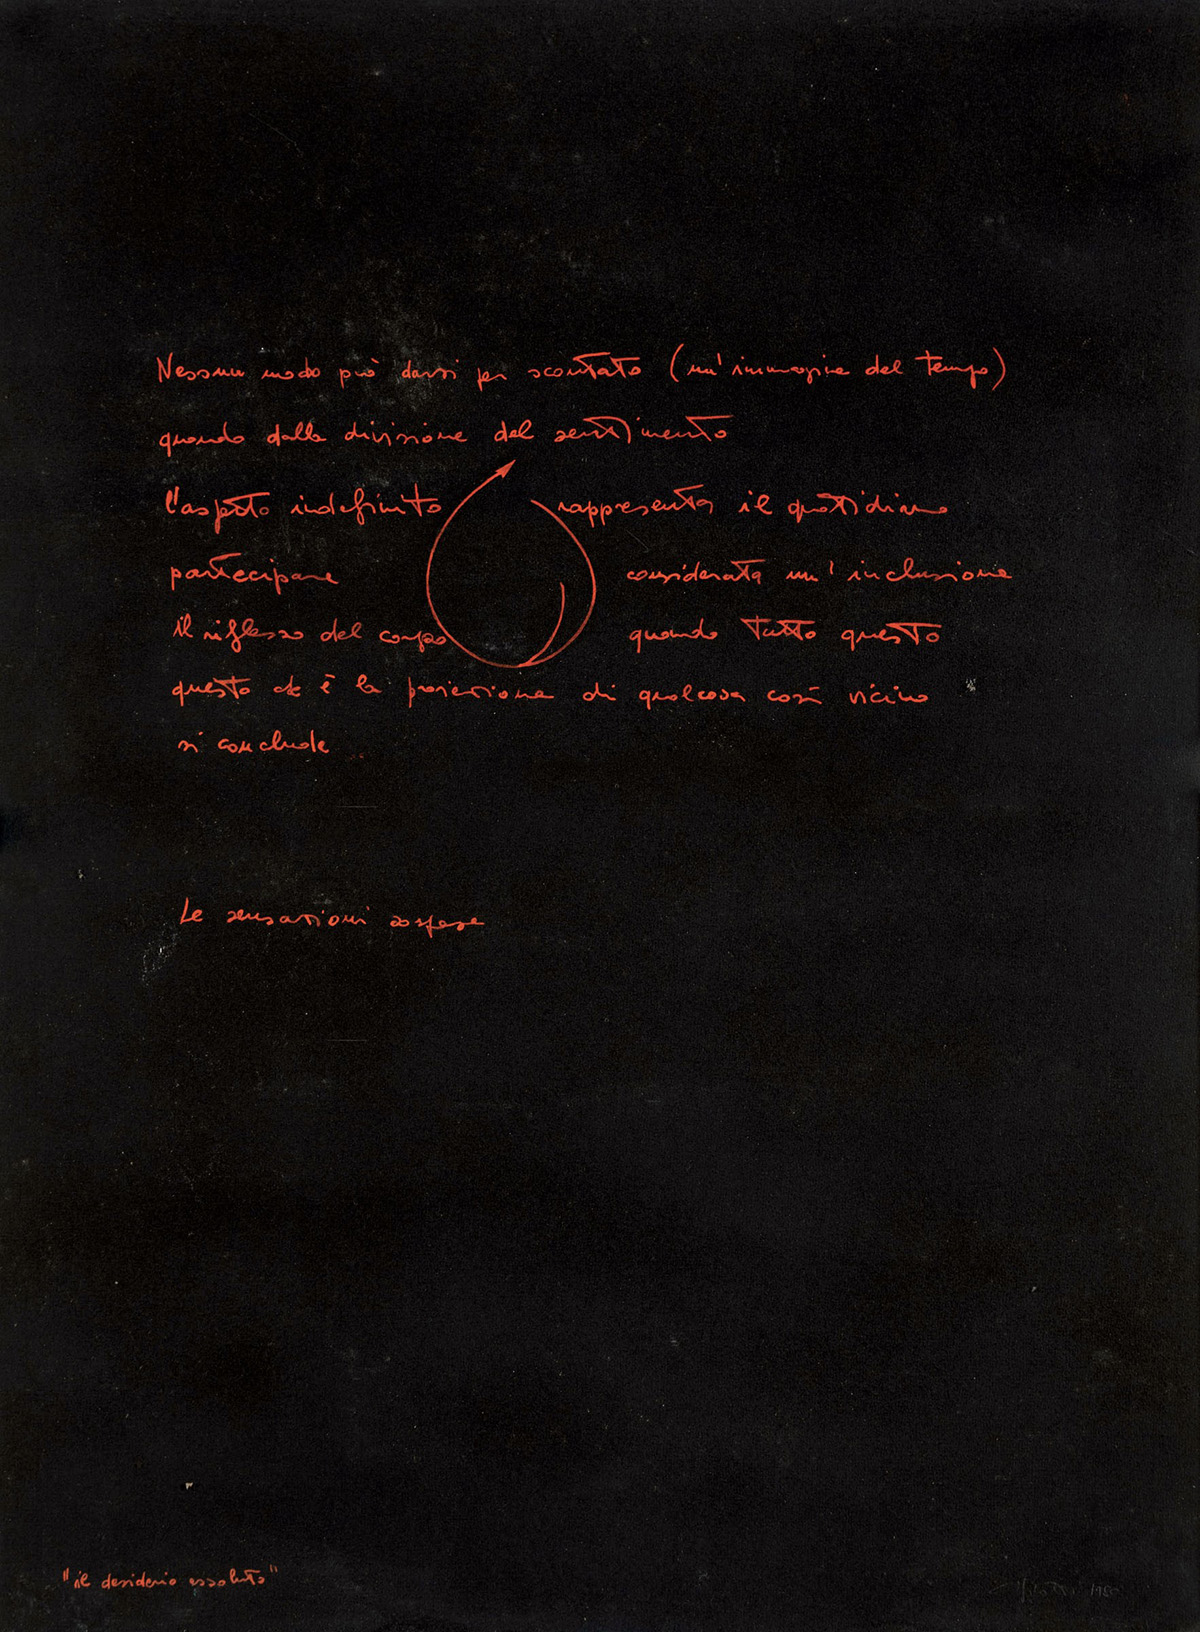 Nessun modo può darsi per scontato (un'immagine del tempo)
quando dalla divisione del sentimento
l'aspetto indefinito rappresenta il quotidiano
partecipare considerata un'inclusione
il riflesso del corpo quando tutto questo
questo che è la proiezione di qualcosa così vicino
si conclude
Le sensazioni sospese
"il desiderio assoluto"
1980